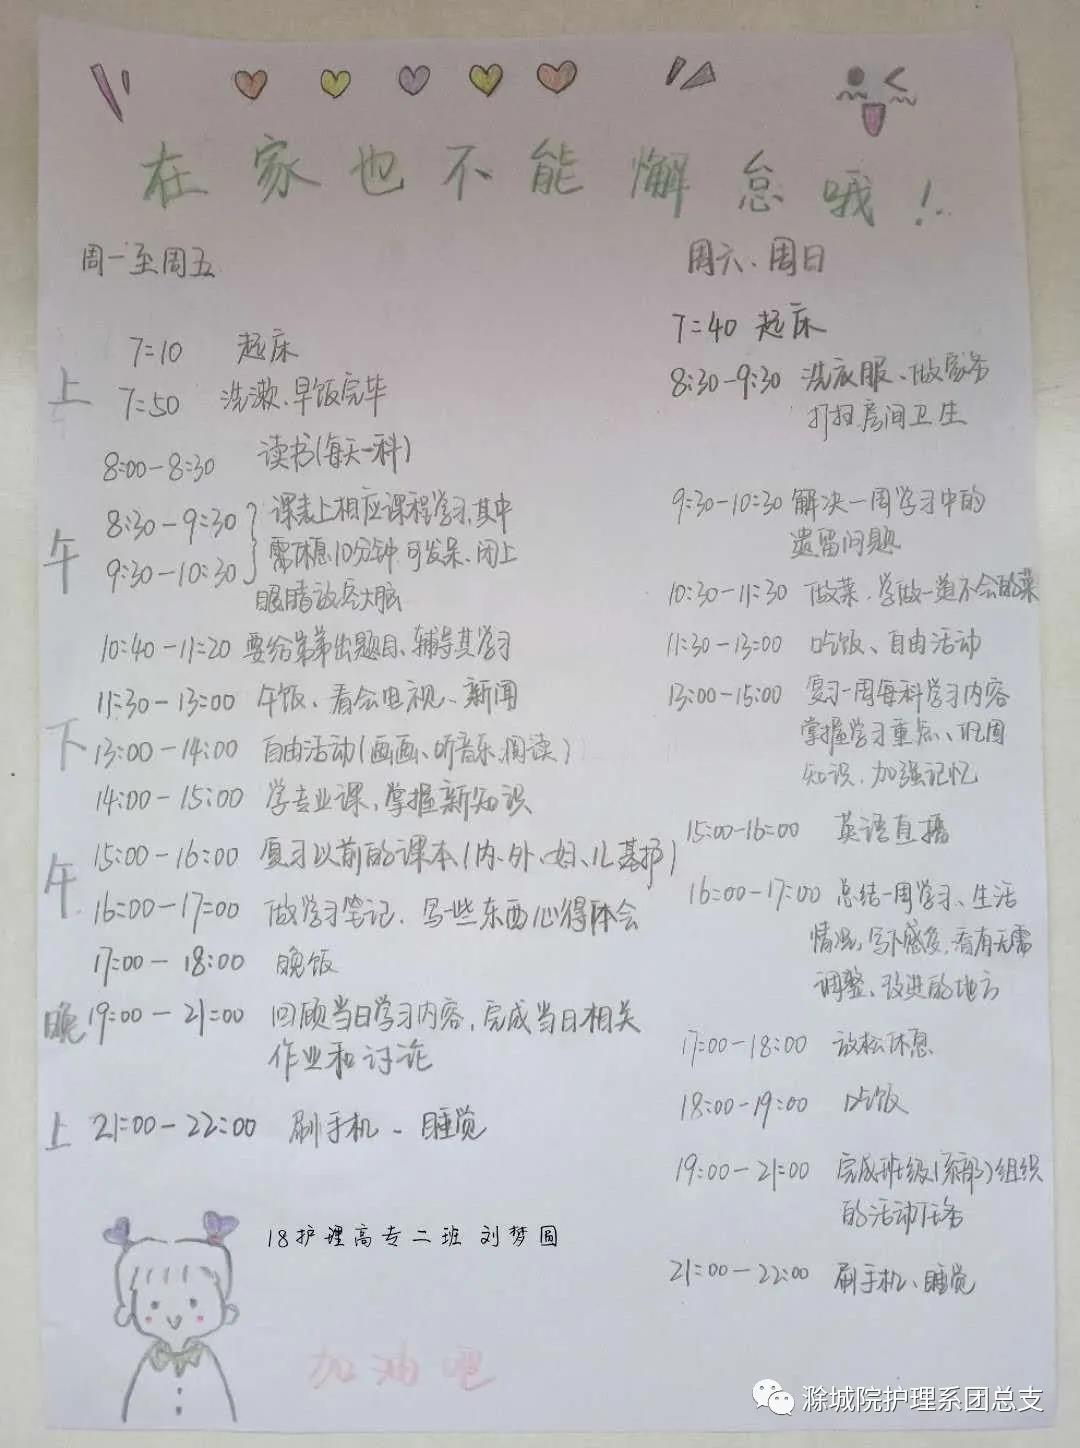 在家也不能懈怠哦！
周一至周五
上
午
7:10 起床
7:50 洗漱、早饭完毕
8:00-8:30 读书(每天一科)
8:30-9:30 课表上相应课程学习,其中
9:30-10:30 需休息10分钟.可发呆、闭上
眼睛放空大脑
10:40-11:20 要给弟弟出题目、辅导其学习
11:30-13:00 午饭、看会电视、新闻
下
午
13:00-14:00 自由活动(画画、听音乐,阅读)
14:00-15:00 学专业课,掌握新知识
15:00-16:00 复习以前的课本(内、外、妇、儿基护)
16:00-17:00 做学习笔记.写一些东西心得体会
17:00-18:00 晚饭
晚
上
19:00-21:00 回顾当日学习内容,完成当日相关
作业和讨论
21:00-22:00 刷手机-睡觉
周六、周日
7:40 起床
8:30-9:30 洗衣服、做家务
打扫房间卫生
9:30-10:30 解决一周学习中的
遗留问题
10:30-11:30 做菜.学做一道不会的菜
11:30-13:00 吃饭、自由活动
13:00-15:00 复习一周每科学习内容
掌握学习重点、巩固
知识.加强记忆
15:00-16:00 英语直播
16:00-17:00 总结一周学习、生活
情况,写下感受,看有无需
调整、改进的地方
17:00-18:00 放松休息
18:00-19:00 吃饭
19:00-21:00 完成班级(系部)组织
的活动任务
21:00-22:00 刷手机、睡觉
18护理高专二班 刘梦圆
加油吧
滁城院护理系团总支